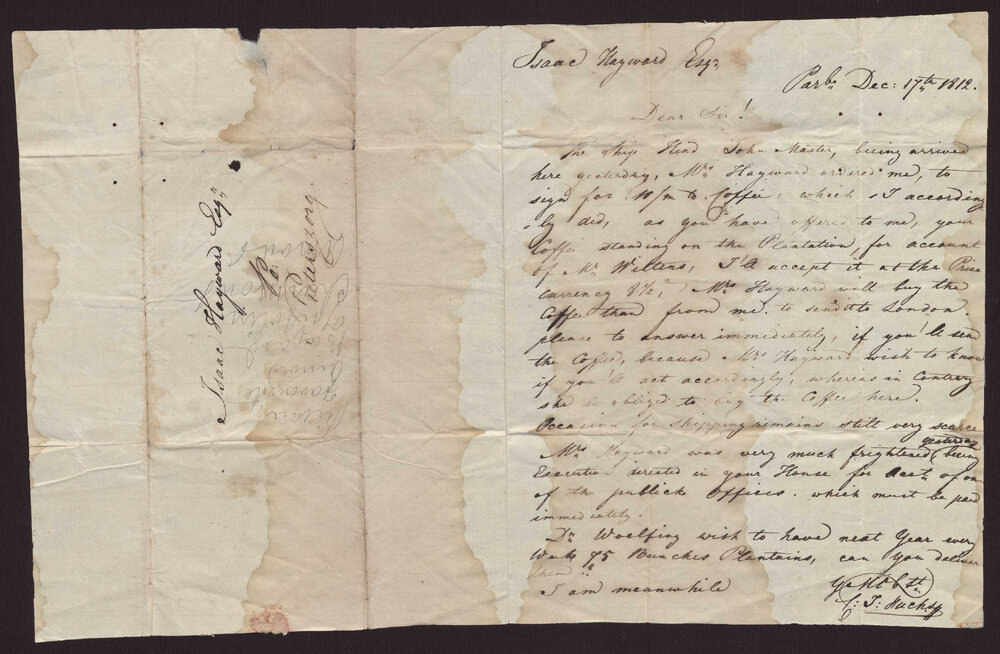 Isaac Hayward Esqr
Parbo Dec: 17th 1812.
Dear Sir!
The Ship Hind John Master, being arrived
here yesterday, Mrs Hayward ordered me, to
sign for 10/m lb Coffee, which I according
ly did, as you have offered to me, your
Coffee standing on the Plantation, for account
of Mr Weltens, I'll accept it at the Price
currency 8½, Mrs Hayward will buy the
Coffee than from me. to send it to London.
please to answer immediately, if you'll send
the Coffee, because Mrs Hayward wish to know
if you'll act accordingly, whereas in Contrary
she is obliged to buy the Coffee here.
Occasion for shipping remains still very scarce
Mrs Hayward was very much frightened yesterday being
Execution directed in your House for Acct of one
of the publick Offices. which must be paid
immediately.
Dr Woelfing wish to have next Year every
Week 75 Bunches Plantains, can you deliver
them?
I am meanwhile
C: J:
Isaac Hayward Esqr
Po: